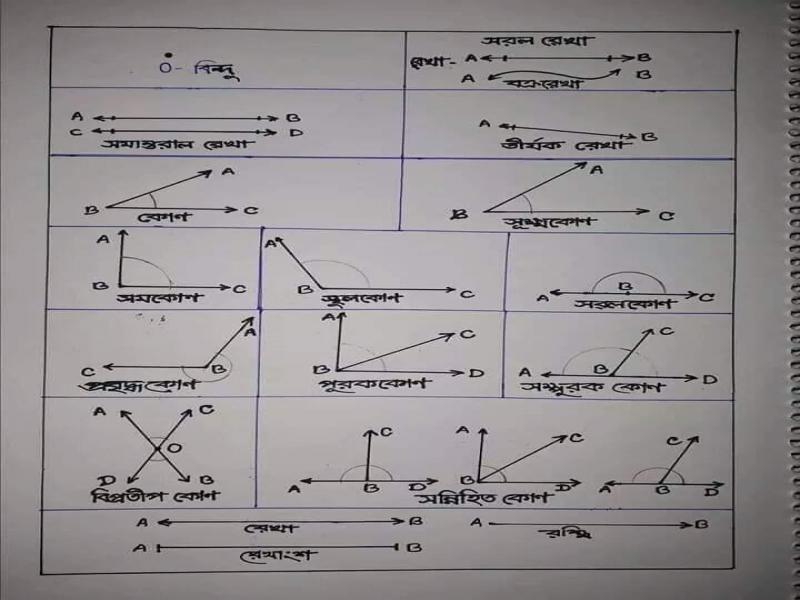 O - বিন্দু
সরল রেখা
রেখা - A B
A বক্ররেখা B
A B
C D
সমান্তরাল রেখা
A B
তীর্যক রেখা
A
B C
কোণ
A
B C
সূক্ষ্মকোণ
A
B C
সমকোণ
A
B C
স্থূলকোণ
B
A C
সরলকোণ
A
C B
প্রবৃদ্ধকোণ
A
C
B D
পূরককোণ
C
A B D
সম্পূরক কোণ
A C
O
D B
বিপ্রতীপ কোণ
C
A B D
A C
B D
C
A B D
সন্নিহিত কোণ
A রেখা B
A রশ্মি B
A রেখাংশ B